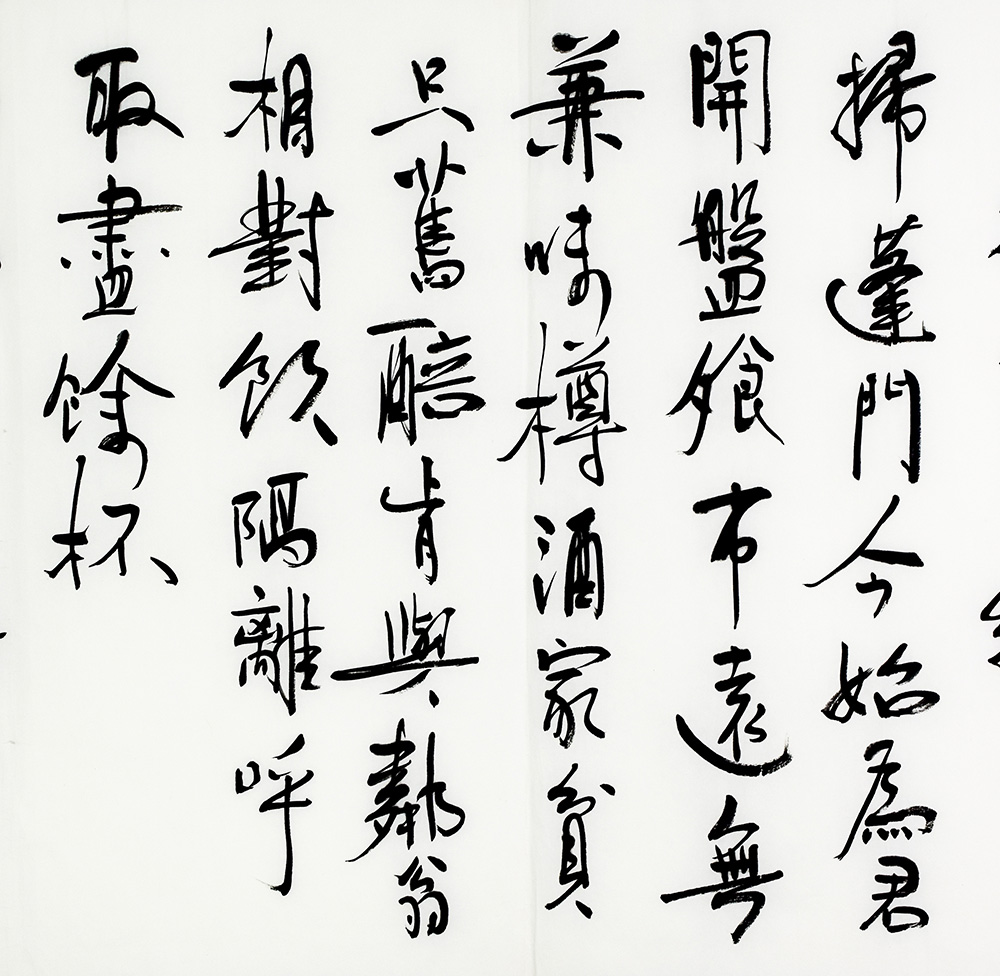 掃蓬門今始為君
開盤飧市遠無
兼味樽酒家貧
只舊醅肯與鄰翁
相對飲隔離呼
取盡餘杯